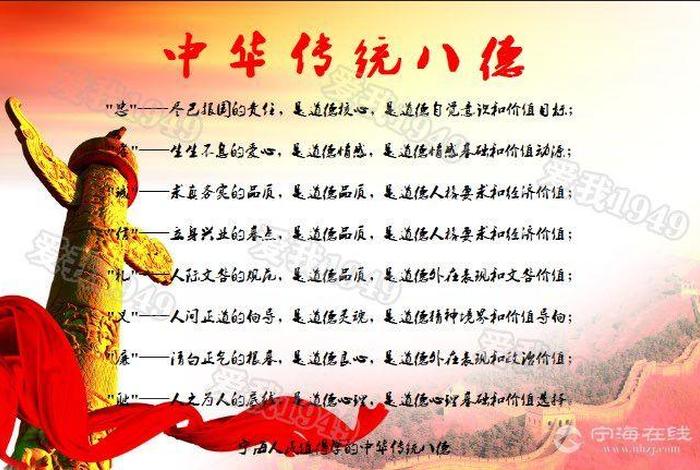 中华传统八德
"忠"——尽己报国的责任，是道德核心，是道德自觉意识和价值目标；
"孝"——生生不息的爱心，是道德情感，是道德情感基础和价值动源；
"诚"——求真务实的品质，是道德品质，是道德人格要求和经济价值；
"信"——立身兴业的基点，是道德品质，是道德人格要求和经济价值；
"礼"——人际文明的规范，是道德品质，是道德外在表现和文明价值；
"义"——人间正道的向导，是道德灵魂，是道德精神境界和价值导向；
"廉"——清白正气的根基，是道德良心，是道德外在表现和政治价值；
"耻"——人之为人的底线，是道德心理，是道德心理基础和价值选择
宁海人的中华传统八德
爱我1949
宁海在线
www.nhzj.com